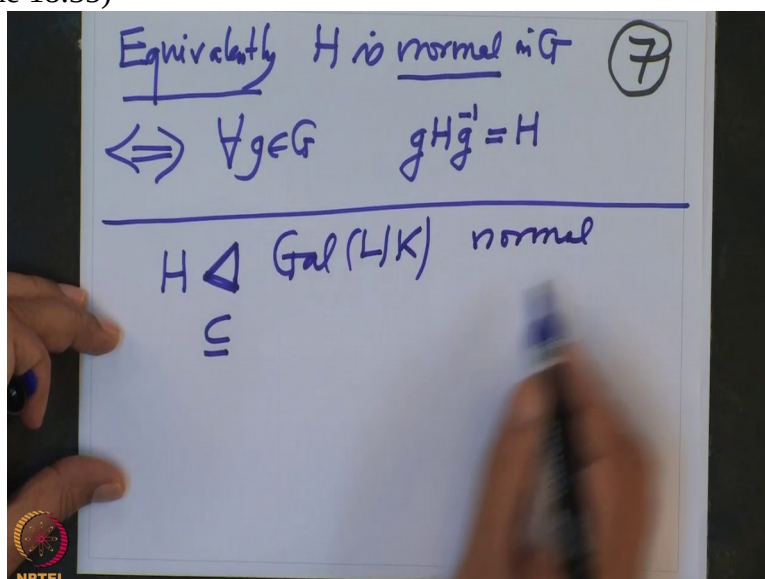 Equivalently H is normal in G
7
⟺ ∀g∈G gHg⁻¹=H
H ◁ Gal(L|K) normal
⊆
NPTEL